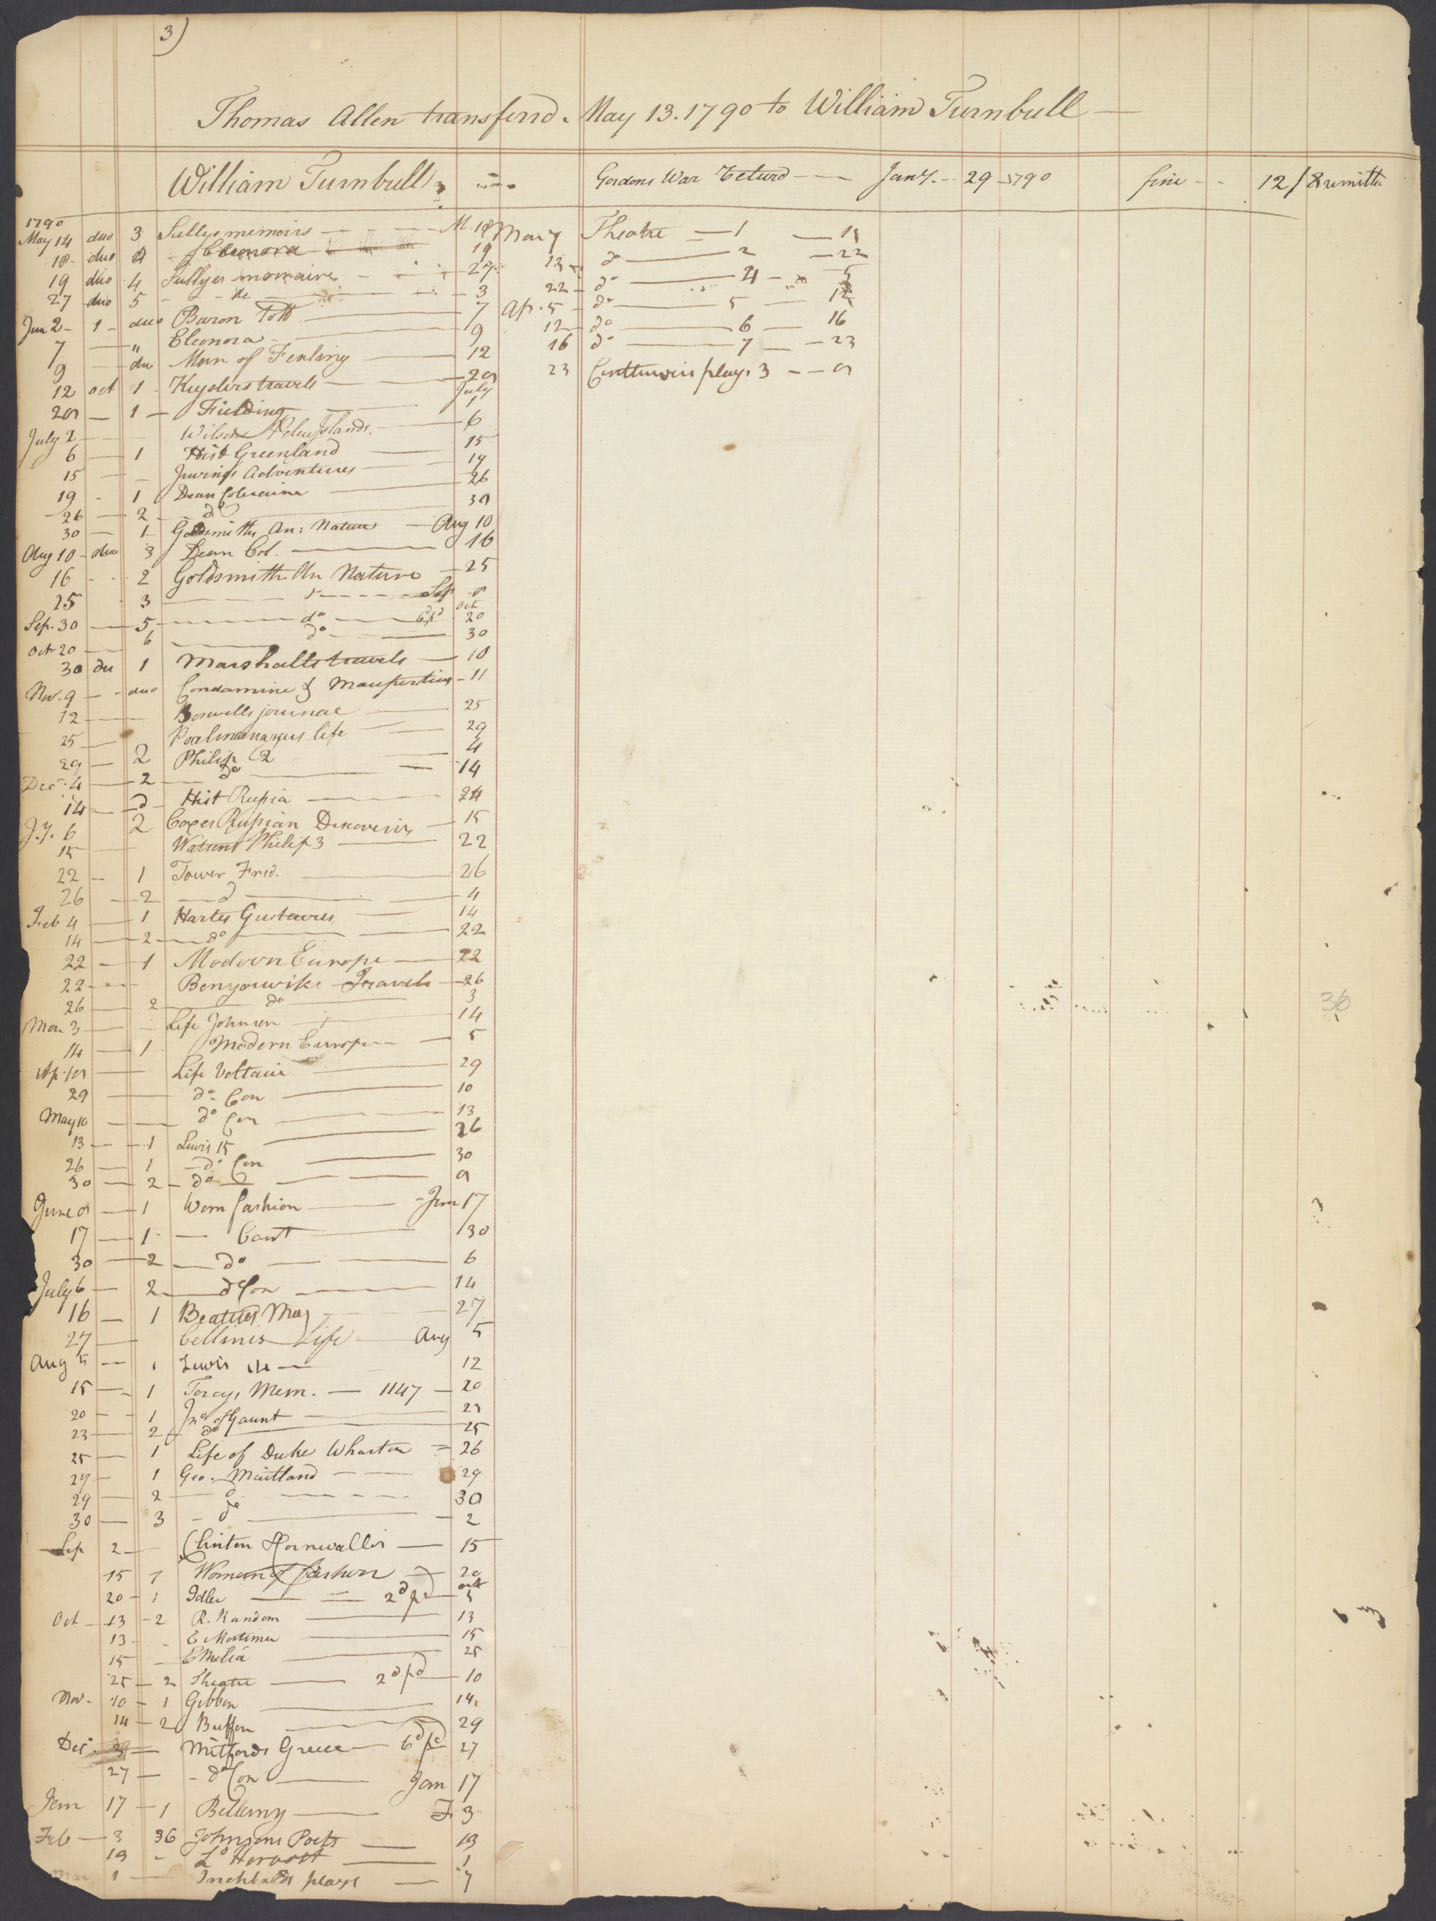 3)
Thomas Allen transferrd. May 13. 1790 to William Turnbull
William Turnbull
Gordons War Returd Jany. 29 1790 fine 12/8 remitte
1790
May 14 duo 3 Sullys memoirs M. 18
18 duo Eleonora 19
19 duo 4 Sullyes memoire 27
27 duo 5 do 3
Jun 2 1 duo Baron Tott 7
7 " Eleonora 9
9 duo Man of Feeling 12
12 oct 1 Keyslers travels 20
July
20 1 Fielding 1
July 2 Wilsons Pelew Islands 6
6 1 Hist Greenland 15
15 Irwings Adventures 19
19 1 Dean Coleraine 26
26 2 do 30
30 1 Goldsmiths An: Nature Aug 10
Aug 10 duo 3 Dean Col. 16
16 2 Goldsmith An Nature 25
25 3 Sep
Sep. 30 5 do 6d pd Oct 20
Oct 20 6 do 30
30 du 1 Marshalls travels 10
Nov. 9 duo Condamine & Maupertius 11
12 Boswells journal 25
25 Psalmanazars life 29
29 2 Philip 2 4
Dec. 4 2 do 14
14 2 Hist Russia 24
J.y. 6 2 Coxes Russian Discoveries 15
15 Watsons Philip 3 22
22 1 Tower Fred. 26
26 2 d 4
Feb 4 1 Hartes Gustavus 14
14 2 do 22
22 1 Modern Europe 22
22 Benyowiks Travels 26
26 2 do 3
Mar 3 Life Johnson 14
14 1 Modern Europe 5
Ap. Life Voltair 29
29 do Con 10
May 10 do Con 13
13 1 Lewis 15 26
26 1 do Con 30
30 2 do 2 9
June 9 1 Wom fashion Jun 17
17 1 Cont 30
30 2 do 6
July 6 2 do Con 14
16 1 Beauties Mag 27
27 Cellinis Life Aug 5
Aug 5 1 Lewis 14 12
15 1 Torcys Mem. 1147 20
20 1 Jno of Gaunt 23
23 2 do 25
25 1 Life of Duke Wharton 26
27 1 Geo. Maitland 29
29 2 do 30
30 3 do 2
Sep 2 Clinton & Cornwallis 15
15 1 Woman of fashion 20
20 1 Idler 2d pd Oct 5
Oct 13 2 R. Random 13
13 E Mortimer 15
15 Emelia 25
25 2 Theatre 2d pd 10
Nov. 10 1 Gibbon 14
14 2 Buffon 29
Dec. 29 Mitfords Greece 6d pd 27
27 do Con Jan 17
Jan 17 1 Bellamy F 3
Feb 3 36 Johnsons Poets 13
13 Ld Hervort 1
Mar 1 Inchbalds plays 7
Mar 7 Theatre 1 15
12 do 2 22
22 do 4 5
Ap. 5 do 5 12
12 do 6 16
16 do 7 23
23 Centlivres plays 3
36